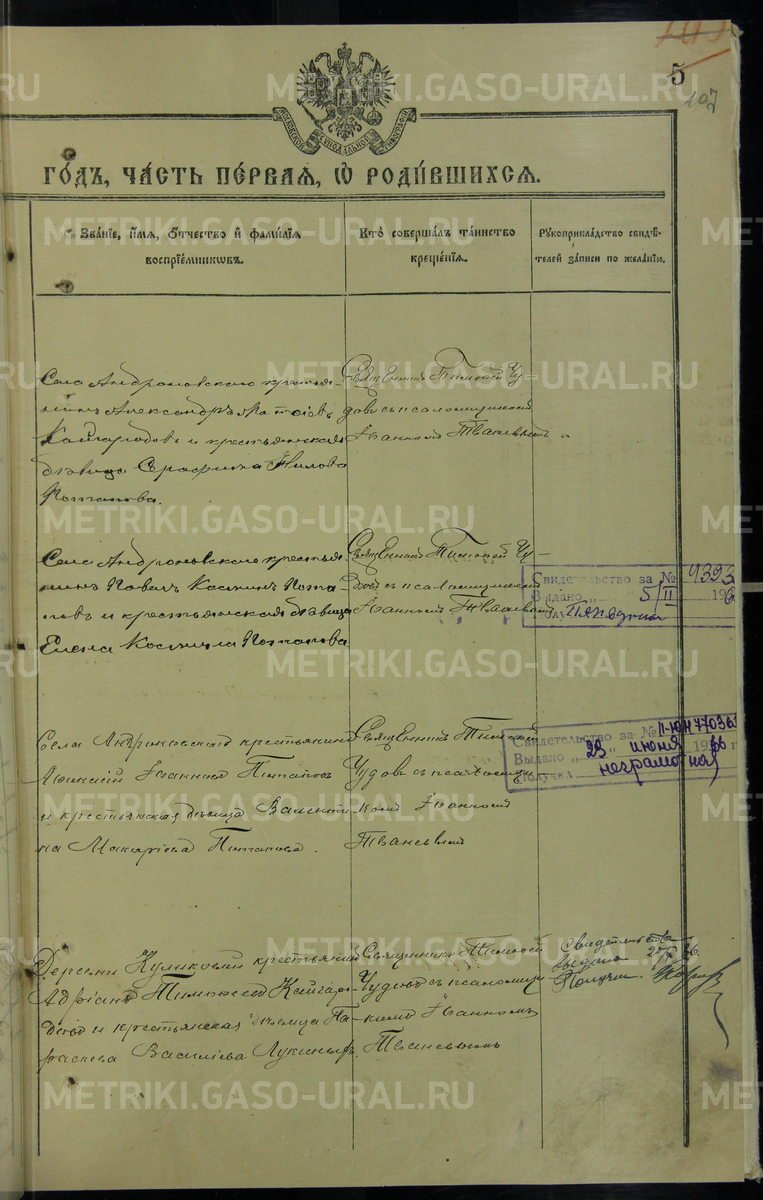 5
107
МОСКОВСКОЙ СѴНОДАЛЬНОЙ ТИПОГРАФІИ
ГО́ДЪ, ЧА́СТЬ ПЕ́РВАЯ, Ѡ҆ РОДИ́ВШИХСѦ.
Зва́нїе, и҆́мѧ, ѻ҆́тчество и҆ фамѝлїѧ
воспрїе́мникѡвъ.
Кто̀ соверша́лъ та́инство
креще́нїѧ.
Рꙋкоприкла́дство свидѣ́-
телей за́писи по жела́нїю.
Села Андроновскаго крестья-
нинъ Александръ Матѳіевъ
Кайгородовъ и крестьянская
дѣвица Серафима Нилова
Потапова.
Священникъ Тимоѳей Чу-
довъ съ псаломщикомъ
Іоанномъ
Села Андроновскаго крестья-
нинъ Павелъ Космин Пота-
повъ и крестьянская дѣвица
Елена Космина Потапова
Священникъ Тимоѳей Чу-
довъ съ псаломщикомъ
Іоанномъ
Свидетельство за № 4393
Выдано „ 5/II 196
Села Андроновскаго крестьянинъ
Іоанновъ Потаповъ
и крестьянская дѣвица Валенти
на Макаріева Потапова.
Священникъ Тимоѳей
Чудовъ съ псаломщи
комъ Іоанномъ
Свидетельство за № II-ЮН 477036
Выдано „ 23 июня 1966 г
Получил неграмотная
Деревни Куликовой крестьянин
Адріанъ Тимоѳеев Кайгоро-
довъ и крестьянская дѣвица Па
раскева Василіева Лукиныхъ
Священникъ Тимоѳей
Чудовъ съ псаломщи
комъ Іоанномъ
Свидетельство
выдано
Получил
METRIKI.GASO-URAL.RU